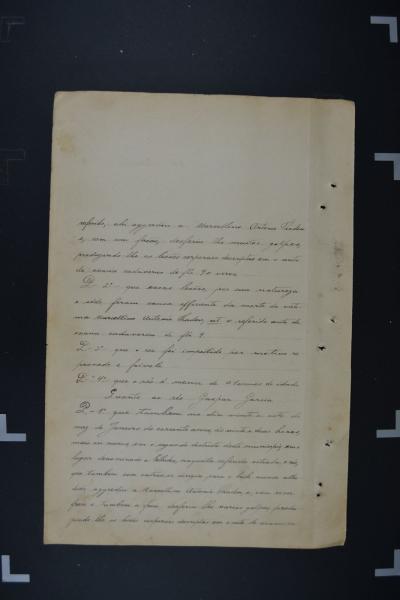 referido, ahi aggrediu a Marcellino Antonio
e, com um facão, desferiu lhe muitos golpes,
produzindo lhe as lesões corporaes descriptas em o auto
de exame cadaverico de fls 9 e verso
P. 2º que essas lesões, por sua natureza
e séde foram causa efficiente da morte da victi-
ma Marcellino Antonio, ut o referido auto de
exame cadaverico de fls 9.
P. 3º que o réo foi impellido por motivo re
provado e frivolo
P. 4º que o réo é menor de annos de edade
Quanto ao réo Gaspar Garcia
P. 1º que tambem no dia vinte e sete do
mez de Janeiro do corrente anno, ás vinte e duas horas,
mais ou menos, em o segundo districto deste municipio em o
logar denominado, naquella referida estrada, o réo,
que tambem com outros se dirigia para o baile nessa alta
dido, aggrediu a Marcellino Antonio e, com um
e tambem a faca, desferiu lhe varios golpes, produ
zindo lhe as lesões corporaes descriptas em o auto de exame